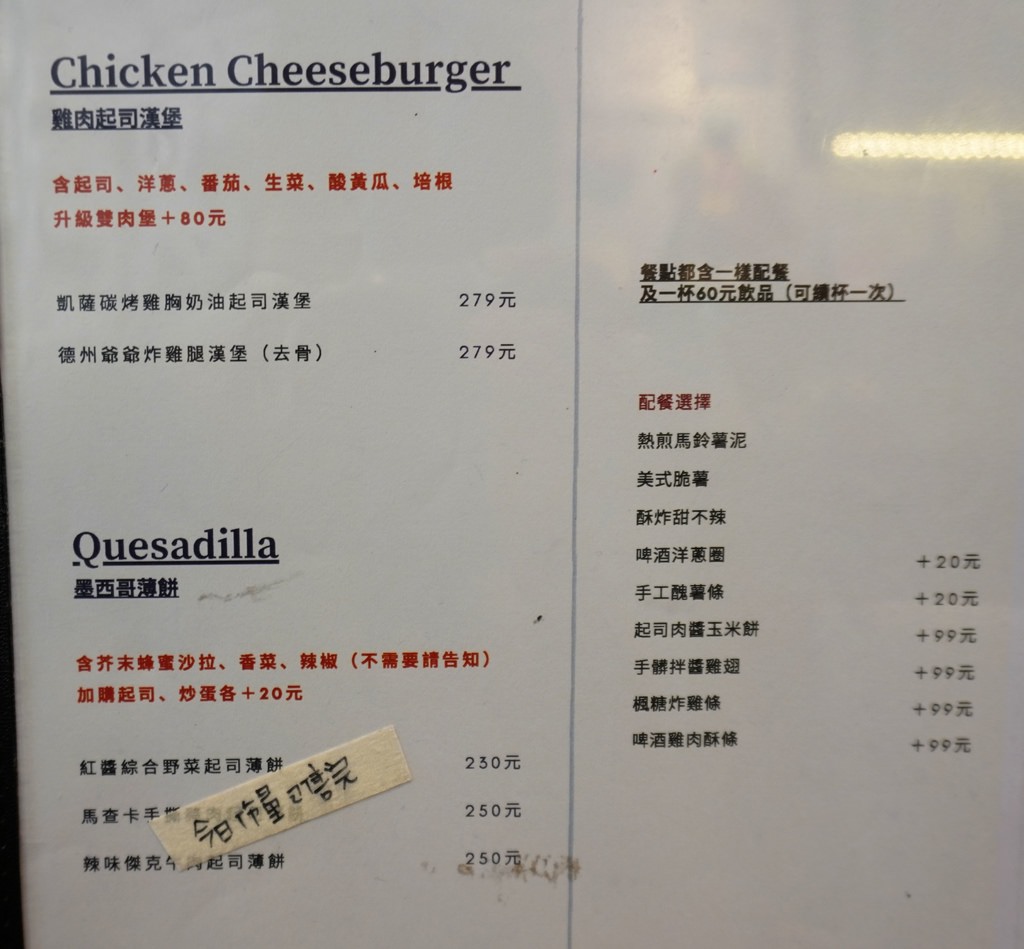 Chicken Cheeseburger
雞肉起司漢堡
含起司、洋蔥、番茄、生菜、酸黃瓜、培根
升級雙肉堡＋80元
凱薩碳烤雞胸奶油起司漢堡 279元
德州爺爺炸雞腿漢堡（去骨） 279元
Quesadilla
墨西哥薄餅
含芥末蜂蜜沙拉、香菜、辣椒（不需要請告知）
加購起司、炒蛋各＋20元
紅醬綜合野菜起司薄餅 230元
馬查卡手 250元
今日 量已售完
辣味傑克牛肉起司薄餅 250元
餐點都含一樣配餐
及一杯60元飲品（可續杯一次）
配餐選擇
熱煎馬鈴薯泥
美式脆薯
酥炸甜不辣
啤酒洋蔥圈 ＋20元
手工醜薯條 ＋20元
起司肉醬玉米餅 ＋99元
手髒拌醬雞翅 ＋99元
楓糖炸雞條 ＋99元
啤酒雞肉酥條 ＋99元